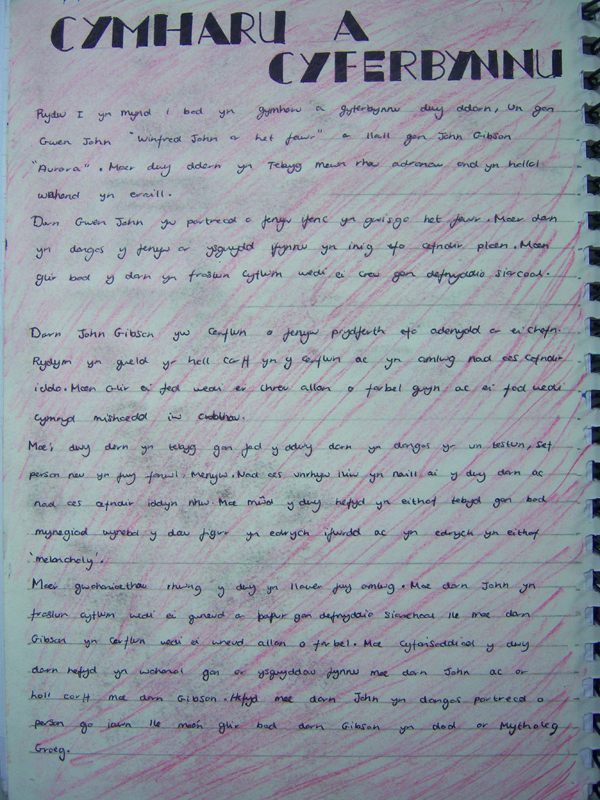 CYMHARU A
CYFERBYNNU
Rydw I yn mynd i bod yn gymharu a gyferbynnu dwy ddarn, Un gan
Gwen John "Winifred John a het fawr" a llall gan John Gibson
"Aurora". Maer dwy ddarn yn Tebyg mewn rhai adranau ond yn hollol
wahanol yn eraill.
Darn Gwen John yw portread o fenyw ifenc yn gwisgo het fawr. Maer darn
yn dangos y fenyw or ysgwydd fynnu yn inig efo cefndir plaen. Maen
glir bod y darn yn fraslun cyflum wedi ei creu gan defnyddio siarcoal.
Darn John Gibson yw cerflun o fenyw prydferth efo adenydd ar ei chefn.
Rydym yn gweld yr holl corff yn y cerflun ac yn amlwg nad oes cefndir
iddo. Maen Clir ei fod wedi er chreu allan o farbel gwyn ac ei fod wedi
cymryd mishoedd iw cwblhau.
Mae'r dwy darn yn tebyg gan fod y ddwy darn yn dangos yr un testun, sef
person neu yn fwy fanwl, Menyw. Nad oes unrhyw lliw yn naill ai y dwy darn ac
nad oes cefndir iddyn nhw. Mae mŵd y dwy hefyd yn eithaf tebyd gan bod
mynegiad wynebd y dau figwr yn edrych ifwrdd ac yn edrych yn eithaf
'melancholy'.
Maer gwahaniaethau rhwng y dwy yn llawer fwy amlwg. Mae darn John yn
fraslun cyflum wedi ei gwneud a bapur gan defnyddio Siarchoal lle mae darn
Gibson yn Cerflun wedi ei wneud allan o farbel. Mae Cyfansoddiad y dwy
darn hefyd yn wahanol gan or ysgwyddau fynnu mae darn John ac or
holl corff mae darn Gibson. Hefyd mae darn John yn dangos portread o
person go iawn lle mae'n glir bod darn Gibson yn dod or Mytholeg
Groeg.